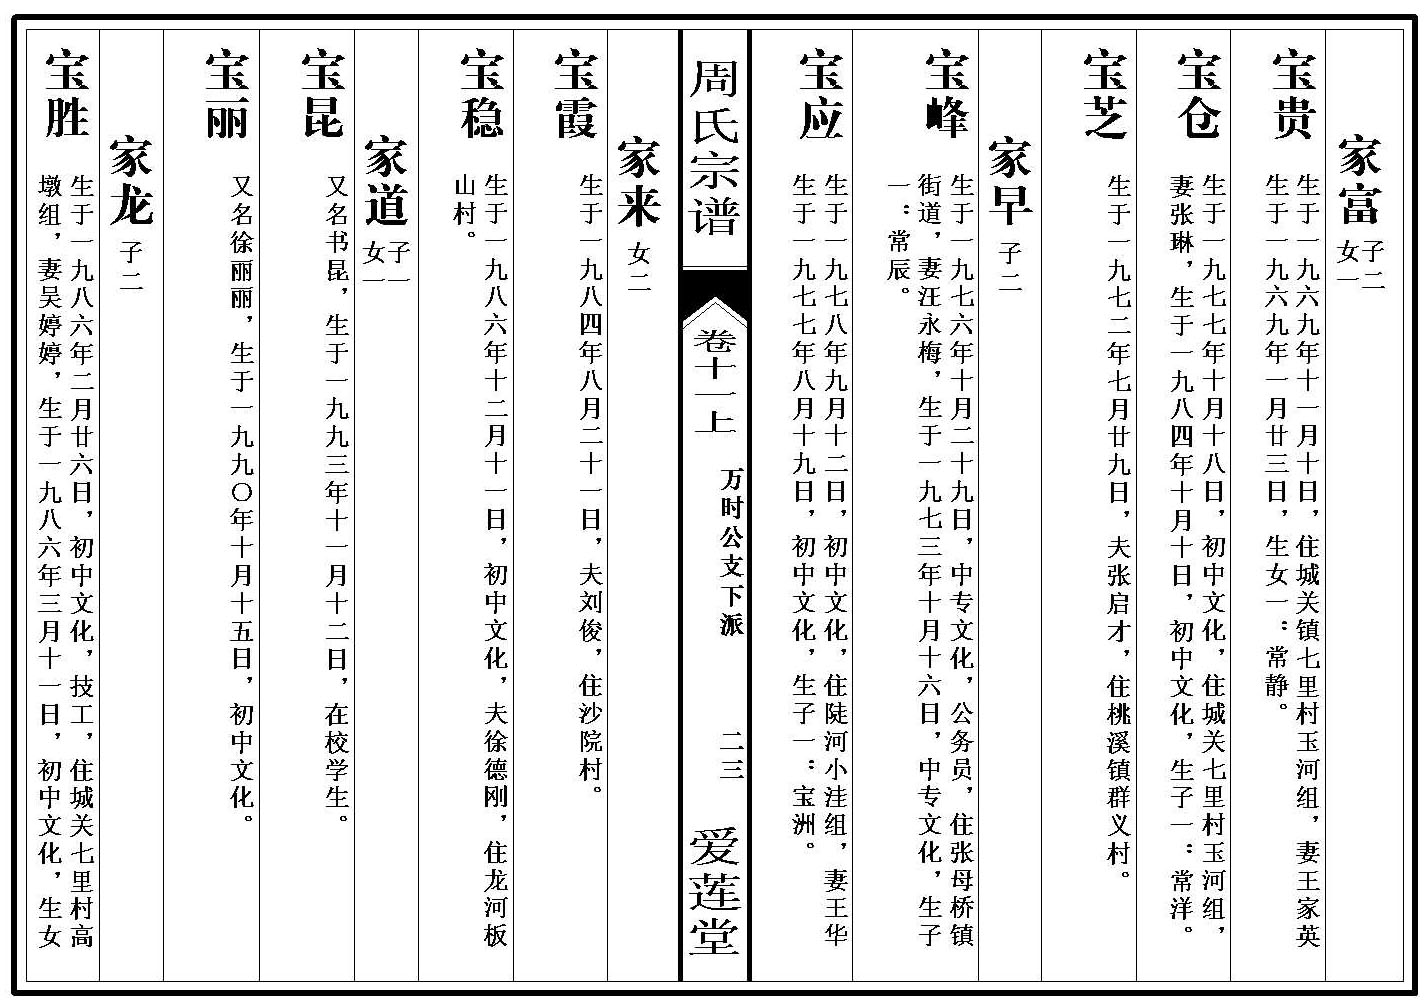 家富 子二
女一
宝贵 生于一九六九年十一月十日，住城关镇七里村玉河组，妻王家英
生于一九六九年一月廿三日，生女一：常静。
宝仓 生于一九七七年十月十八日，初中文化，住城关七里村玉河组，
妻张琳，生于一九八四年十月十日，初中文化，生子一：常洋。
宝芝 生于一九七二年七月廿九日，夫张启才，住桃溪镇群义村。
家早 子二
宝峰 生于一九七六年十月二十九日，中专文化，公务员，住张母桥镇
街道，妻汪永梅，生于一九七三年十月十六日，中专文化，生子
一：常辰。
宝应 生于一九七八年九月十二日，初中文化，住陡河小洼组，妻王华
生于一九七七年八月十九日，初中文化，生子一：宝洲。
周氏宗谱
卷十一上
万时公支下派
二三
爱莲堂
家来 女二
宝霞 生于一九八四年八月二十一日，夫刘俊，住沙院村。
宝稳 生于一九八六年十二月十一日，初中文化，夫徐德刚，住龙河板
山村。
家道 子一
女一
宝昆 又名书昆，生于一九九三年十一月十二日，在校学生。
宝丽 又名徐丽丽，生于一九九〇年十月十五日，初中文化。
家龙 子二
宝胜 生于一九八六年二月廿六日，初中文化，技工，住城关七里村高
墩组，妻吴婷婷，生于一九八六年三月十一日，初中文化，生女